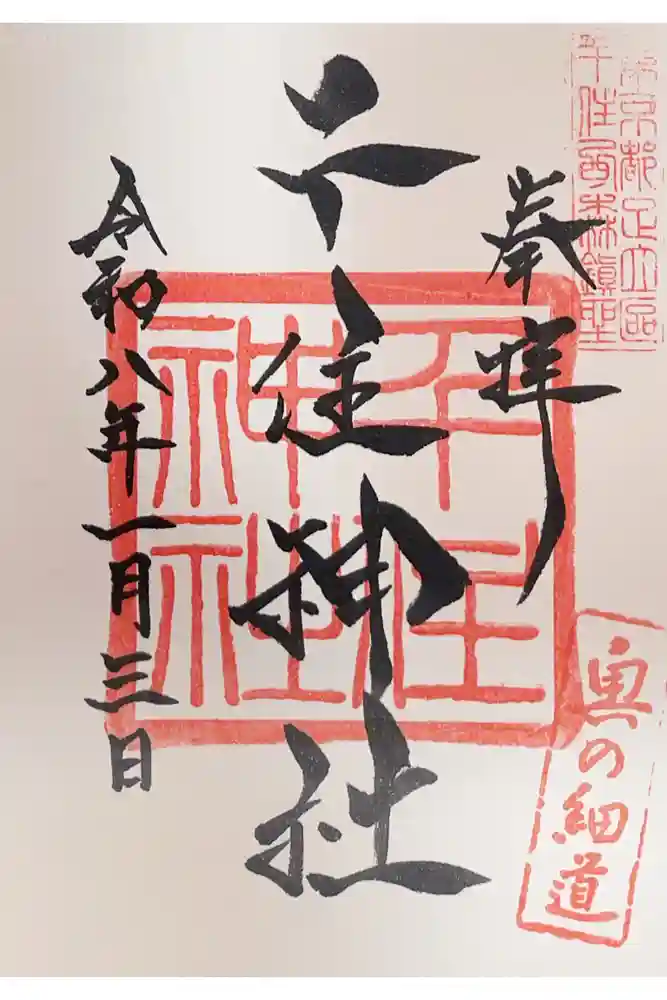 東京都足立區
千住西森鎮座
奉拝
奥の細道
千住神社
千住
神社
令和八年一月三日